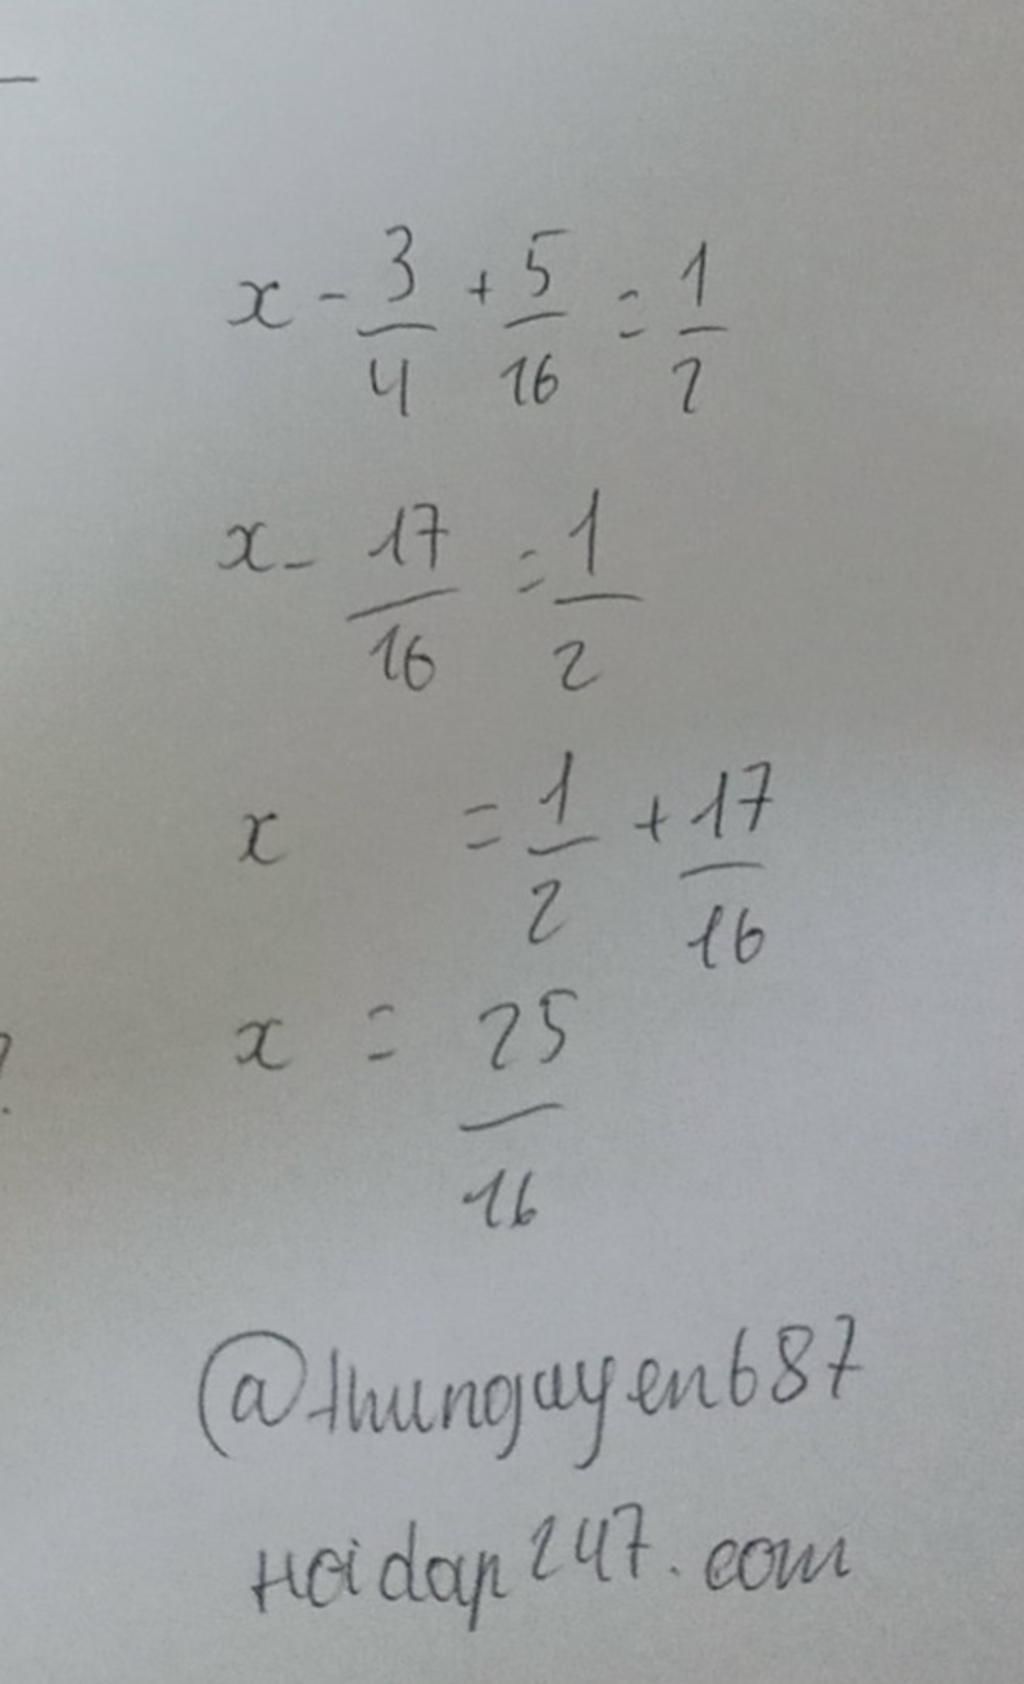 x - 3/4 + 5/16 = 1/2
x - 17/16 = 1/2
x = 1/2 + 17/16
x = 25/16
@thunguyen687
Hoidap247.com